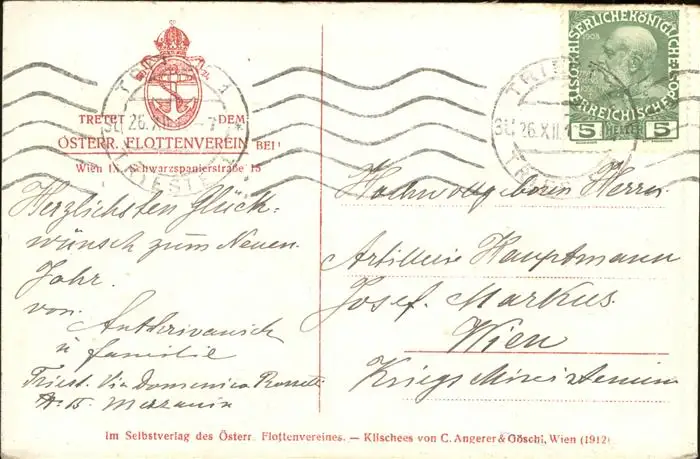 TRETET DEM
ÖSTERR. FLOTTENVEREIN BEI!
Wien IX. Schwarzspanierstraße 15
TRIEST 1
26.XII.
TRIESTE
KAISERLICHE KÖNIGLICHE
ÖSTERREICHISCHE POST
1908
5 HELLER 5
Herzlichsten Glück-
wünsch zum Neuen
Jahr.
von
u familie
Triest. Via Domenico Rossetti
Mezzanin
Hochwohlgeboren Herrn
Artillerie Hauptmann
Josef Markus
Wien
Kriegs Ministerium
Im Selbstverlag des Österr. Flottenvereines. — Klischees von C. Angerer & Göschl, Wien (1912)